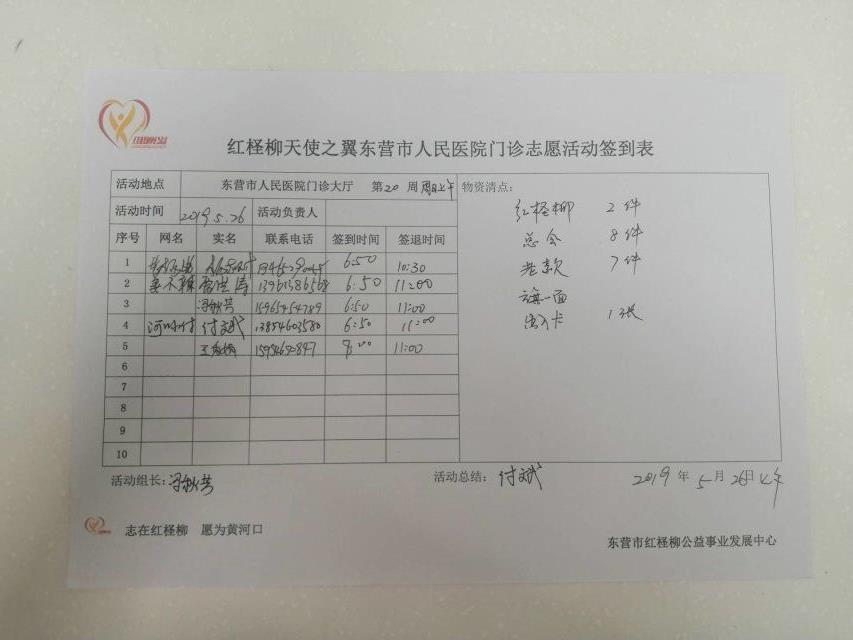 红柽柳天使之翼东营市人民医院门诊志愿活动签到表
活动地点 东营市人民医院门诊大厅 第20周 周日上午 物资清点:
活动时间 2019.5.26 活动负责人
红柽柳 2件
序号 网名 实名 联系电话 签到时间 签退时间
总会 8件
老款 7件
旗一面
出入卡 1张
1 6:50 10:30
2 6:50 11:00
3 冯秋芳 15965454789 6:50 11:00
4 付文斌 13854603580 6:50 11:00
5 8:00 11:00
6
7
8
9
10
活动组长:冯秋芳 活动总结:付文斌 2019年5月26日上午
志在红柽柳 愿为黄河口
东营市红柽柳公益事业发展中心